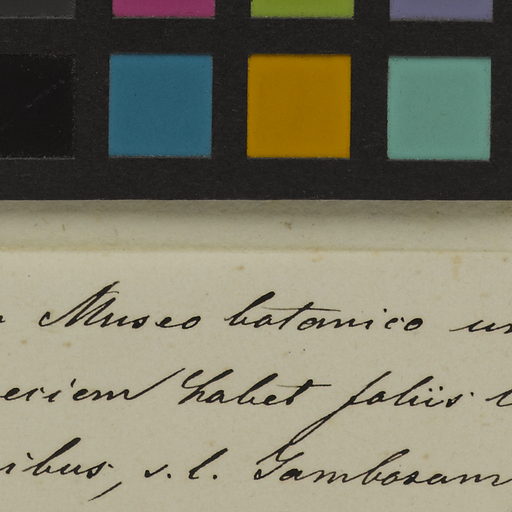 Museo botanico
eciem habet foliis
ibus, s. l. Jambosam